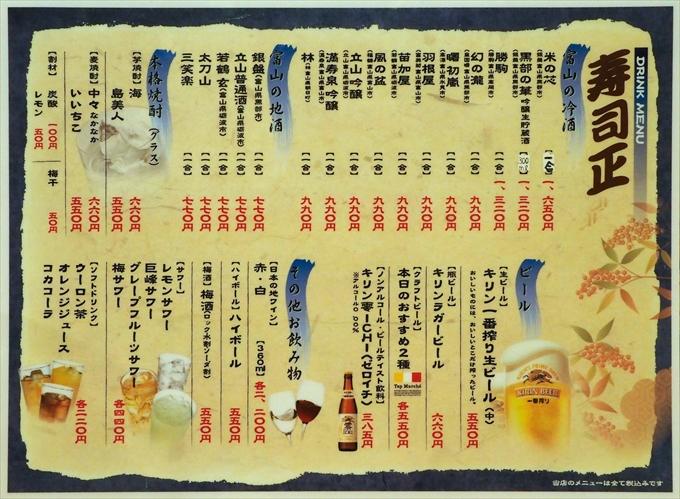 DRINK MENU
寿司正
富山の冷酒
米の芯 【一合】 一、六五〇円
黒部の華 吟醸生貯蔵酒 【300ml】 一、三二〇円
勝駒 【一合】 一、三二〇円
幻の瀧 【一合】 九九〇円
曙初嵐 【一合】 九九〇円
羽根屋 【一合】 九九〇円
苗加屋 【一合】 九九〇円
風の盆 【一合】 九九〇円
立山吟醸 【一合】 九九〇円
満寿泉吟醸 【一合】 九九〇円
林 【一合】 九九〇円
富山の地酒
銀盤(富山県黒部市) 【一合】 七七〇円
立山普通酒(富山県砺波市) 【一合】 七七〇円
若鶴 玄(富山県砺波市) 【一合】 七七〇円
太刀山 【一合】 七七〇円
三笑楽 【一合】 七七〇円
本格焼酎(グラス)
【芋焼酎】 海 六六〇円
島美人 五五〇円
【麦焼酎】 中々 なかなか 六六〇円
いいちこ 五五〇円
【割材】 炭酸 一〇〇円
レモン 五〇円
梅干 五〇円
ビール
【生ビール】
キリン一番搾り生ビール(中) 五五〇円
おいしいものには、おいしいとこだけ搾ったビール。
【瓶ビール】
キリンラガービール 六六〇円
【クラフトビール】
本日のおすすめ2種 各五五〇円
Tap Marché
【ノンアルコール・ビールテイスト飲料】
キリン零ICHI(ゼロイチ) 三八五円
※アルコール0.00%
KIRIN BEER
一番搾り
その他お飲み物
【日本の地ワイン】
赤・白 【360ml】 各二、二〇〇円
【ハイボール】 ハイボール 五五〇円
【梅酒】 梅酒(ロック 水割 ソーダ割) 五五〇円
【サワー】
レモンサワー
巨峰サワー
グレープフルーツサワー
梅サワー 各四四〇円
【ソフトドリンク】
ウーロン茶
オレンジジュース
コカコーラ 各二二〇円
当店のメニューは全て税込みです